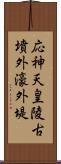 応神天皇陵古
墳外濠外堤